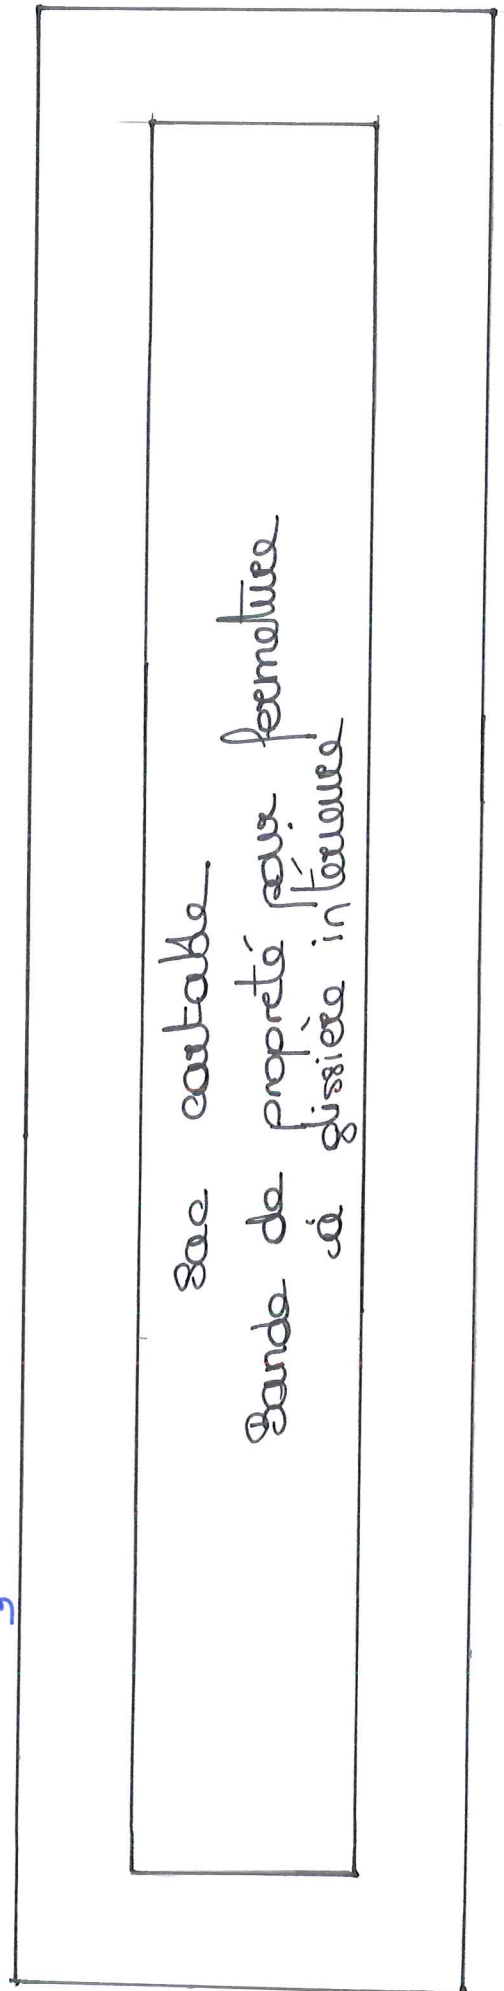 Sac cartable.
Bande de propreté pour fermeture
à glissière intérieure